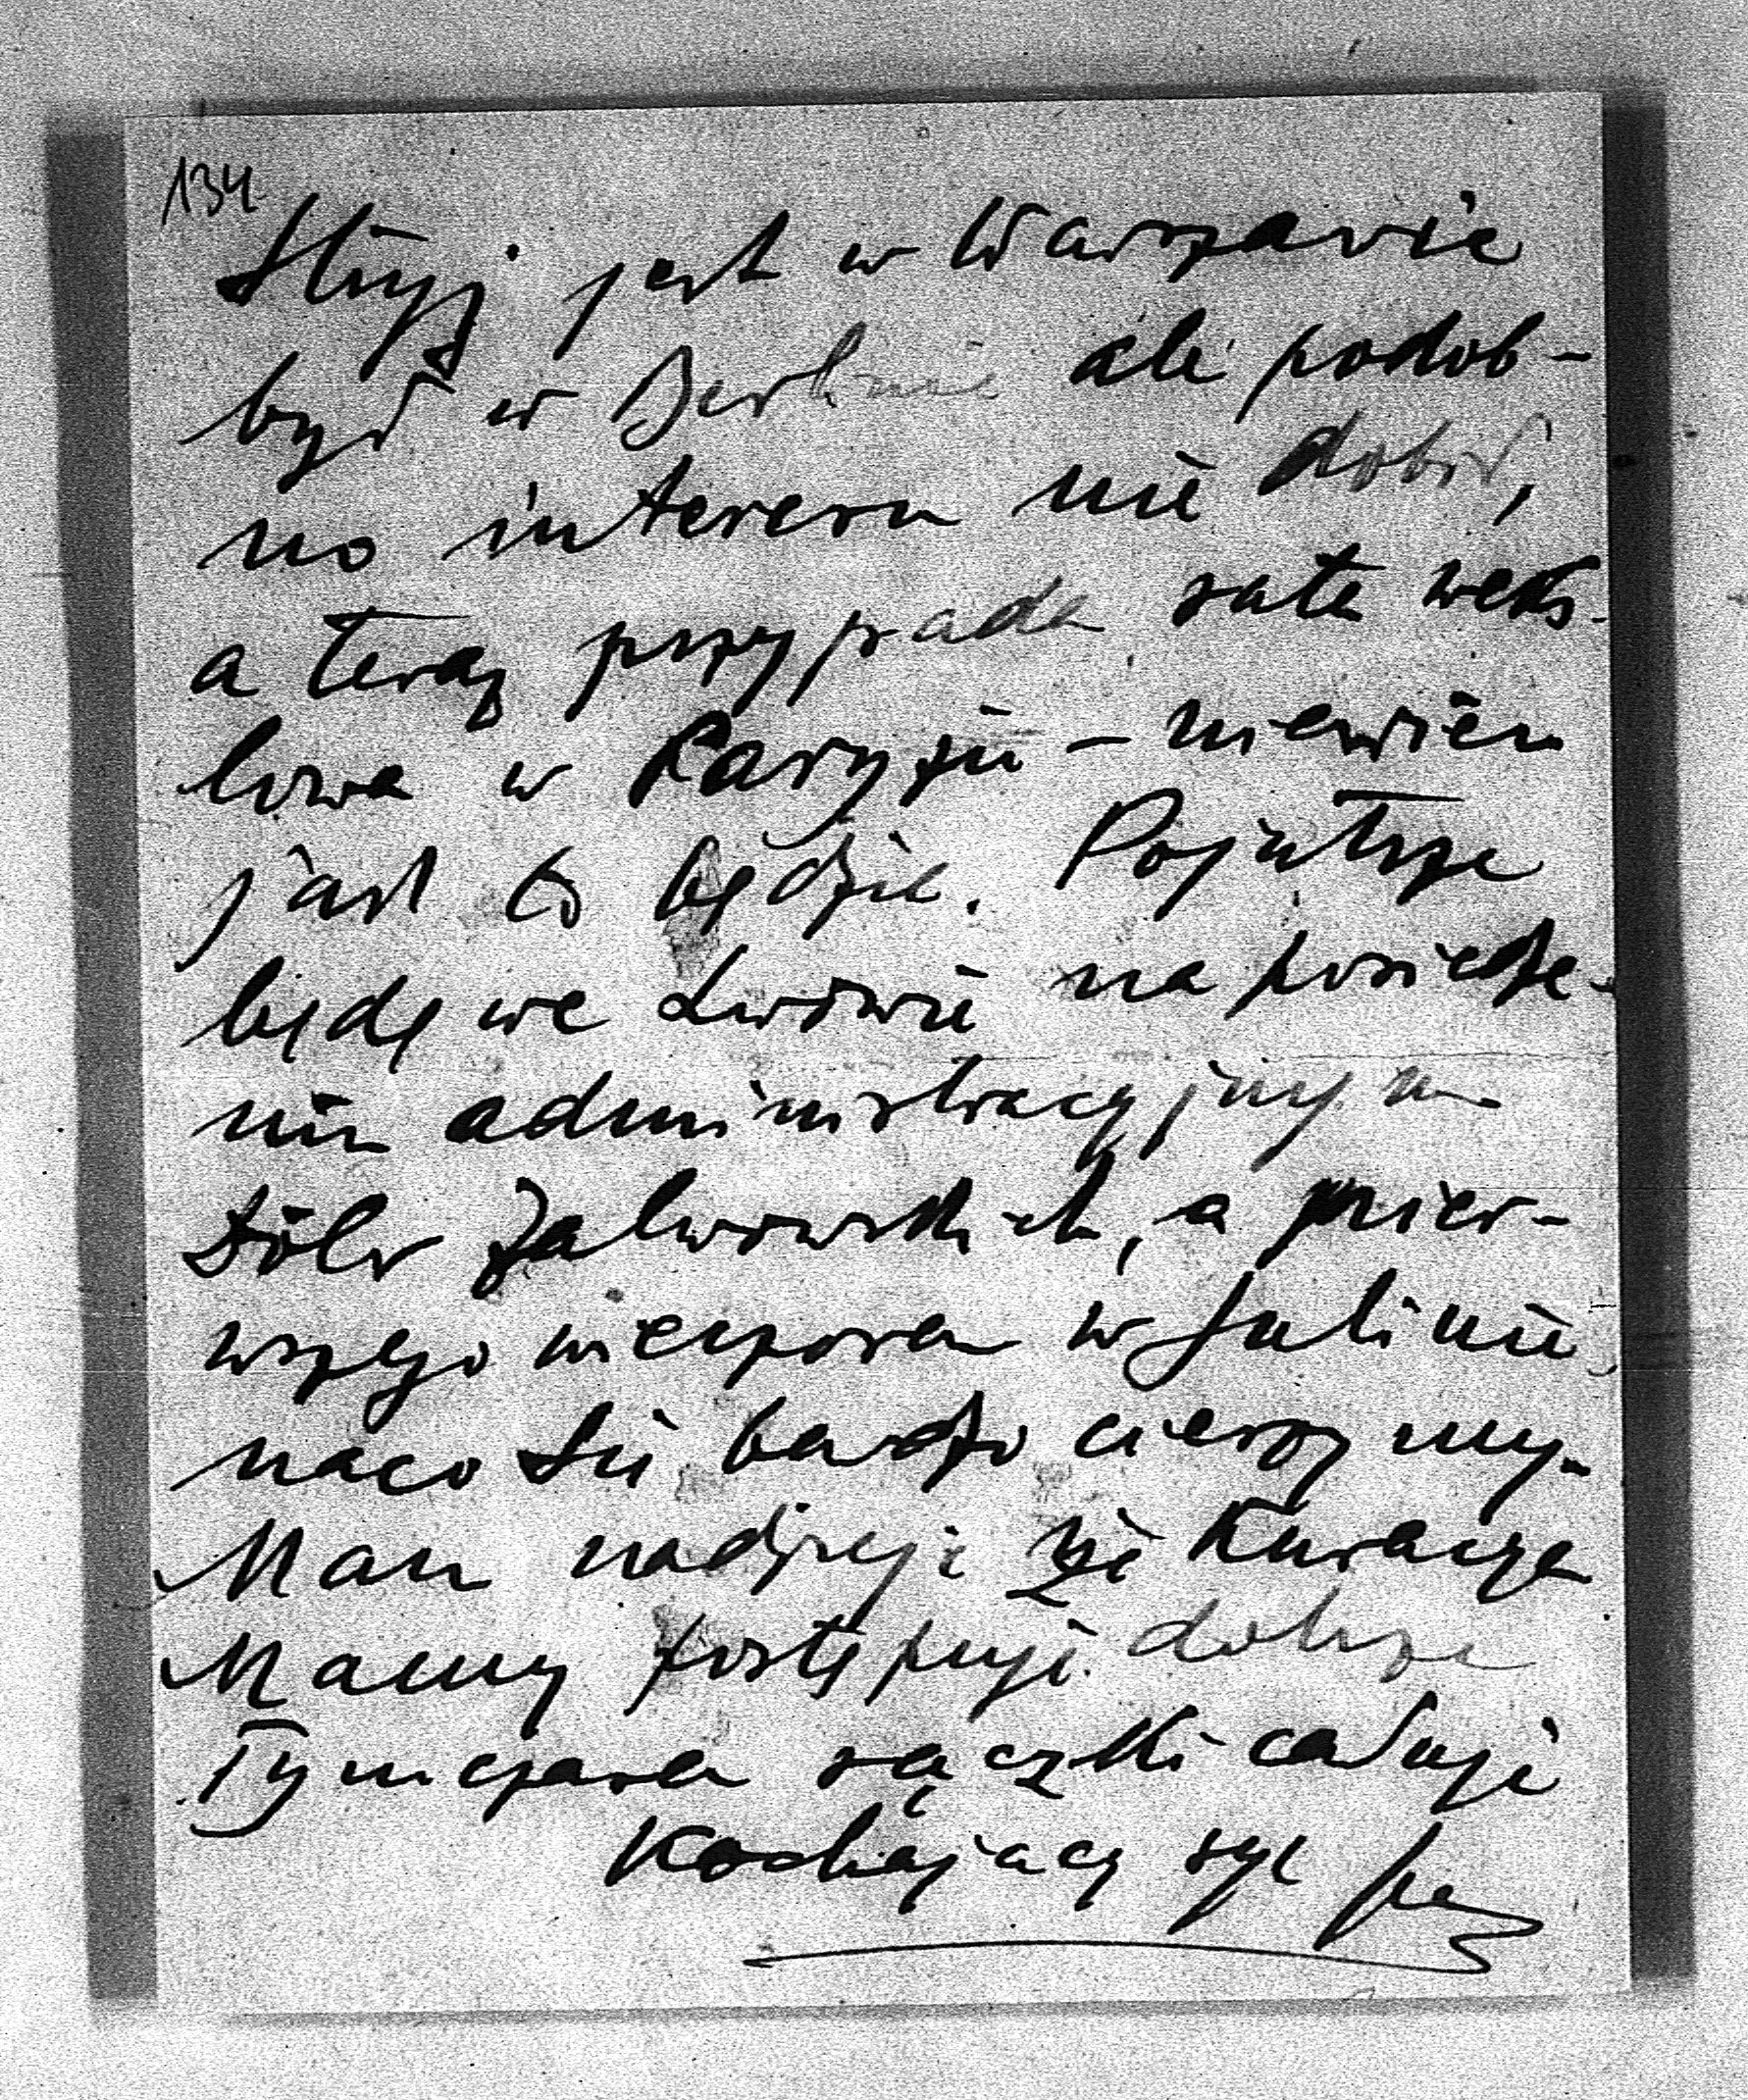 134
Stryj jest w Warszawie
był w Berlinie ale podob-
no interesu nie dobił,
a teraz przypada rata weks-
lowa w Paryżu – niewiem
jak to będzie. Pojutrze
będę we Lwowie na posiedze-
niu administracyjnym
dóbr Zalwowskich, a pier-
wszego wieczorem w Julinie
naco się bardzo cieszymy.
Mam nadzieję że Kuracya
Mamy postępuje dobrze
Tymczasem rączki całuję
Kochający syn